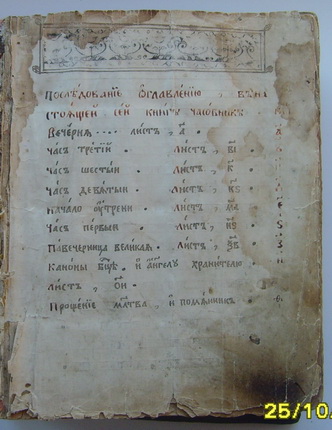 Послѣдованїе ѡглавленїю, въ на
стоѧщей сей книгѣ часовникъ
Вечерня ---- листъ, а҃ . а
Часъ третїй . листъ, ві҃ . в
Часъ шестый . листъ, к҃ .
Часъ девѧтый . листъ, кѕ҃ .
Начало ѹтрени . листъ, . е
Часъ первый . листъ, . ѕ
Павечерница великаѧ . листъ, . з
Каноны бц҃ѣ . и а҃гг҃елу хранителю . и
листъ, ѻ҃и .
Прощенїе м҃тва, и полѹнощн . ѳ
25/10